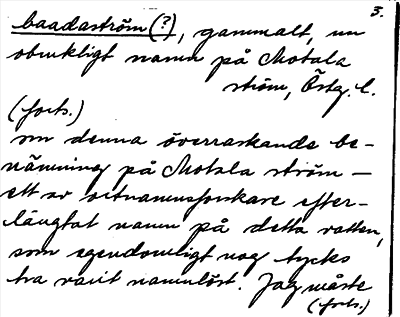 3.
baadaström (?), gammalt, nu
obrukligt namn på Motala
ström, Östg. l.
(forts.)
om denna överraskande be-
nämning på Motala ström —
ett av ortnamnsforskare efter-
längtat namn på detta vatten,
som egendomligt nog tycks
ha varit namnlöst. Jag måste
(forts.)